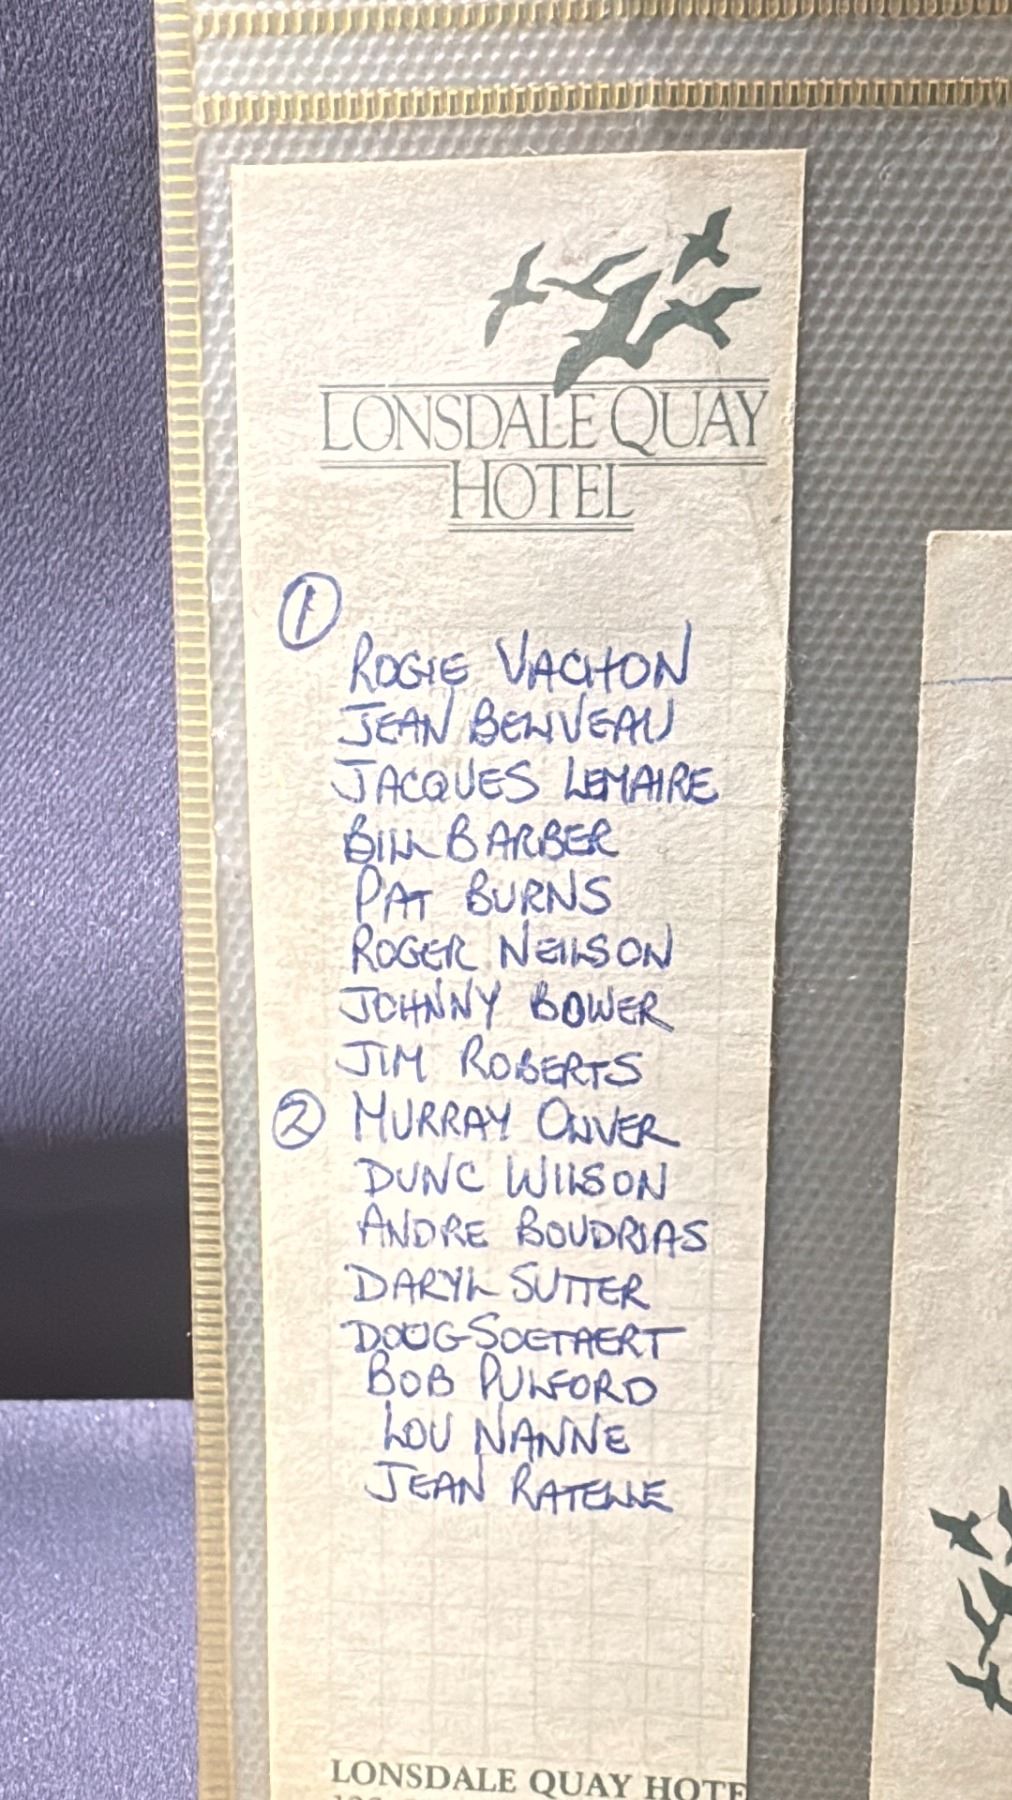 LONSDALE QUAY
HOTEL
1
ROGIE VACHON
JEAN BELIVEAU
JACQUES LEMAIRE
BILL BARBER
PAT BURNS
ROGER NEILSON
JOHNNY BOWER
JIM ROBERTS
2 MURRAY OLIVER
DUNC WILSON
ANDRE BOUDRIAS
DARYL SUTTER
DOUG SOETAERT
BOB PULFORD
LOU NANNE
JEAN RATELLE
LONSDALE QUAY HOTE